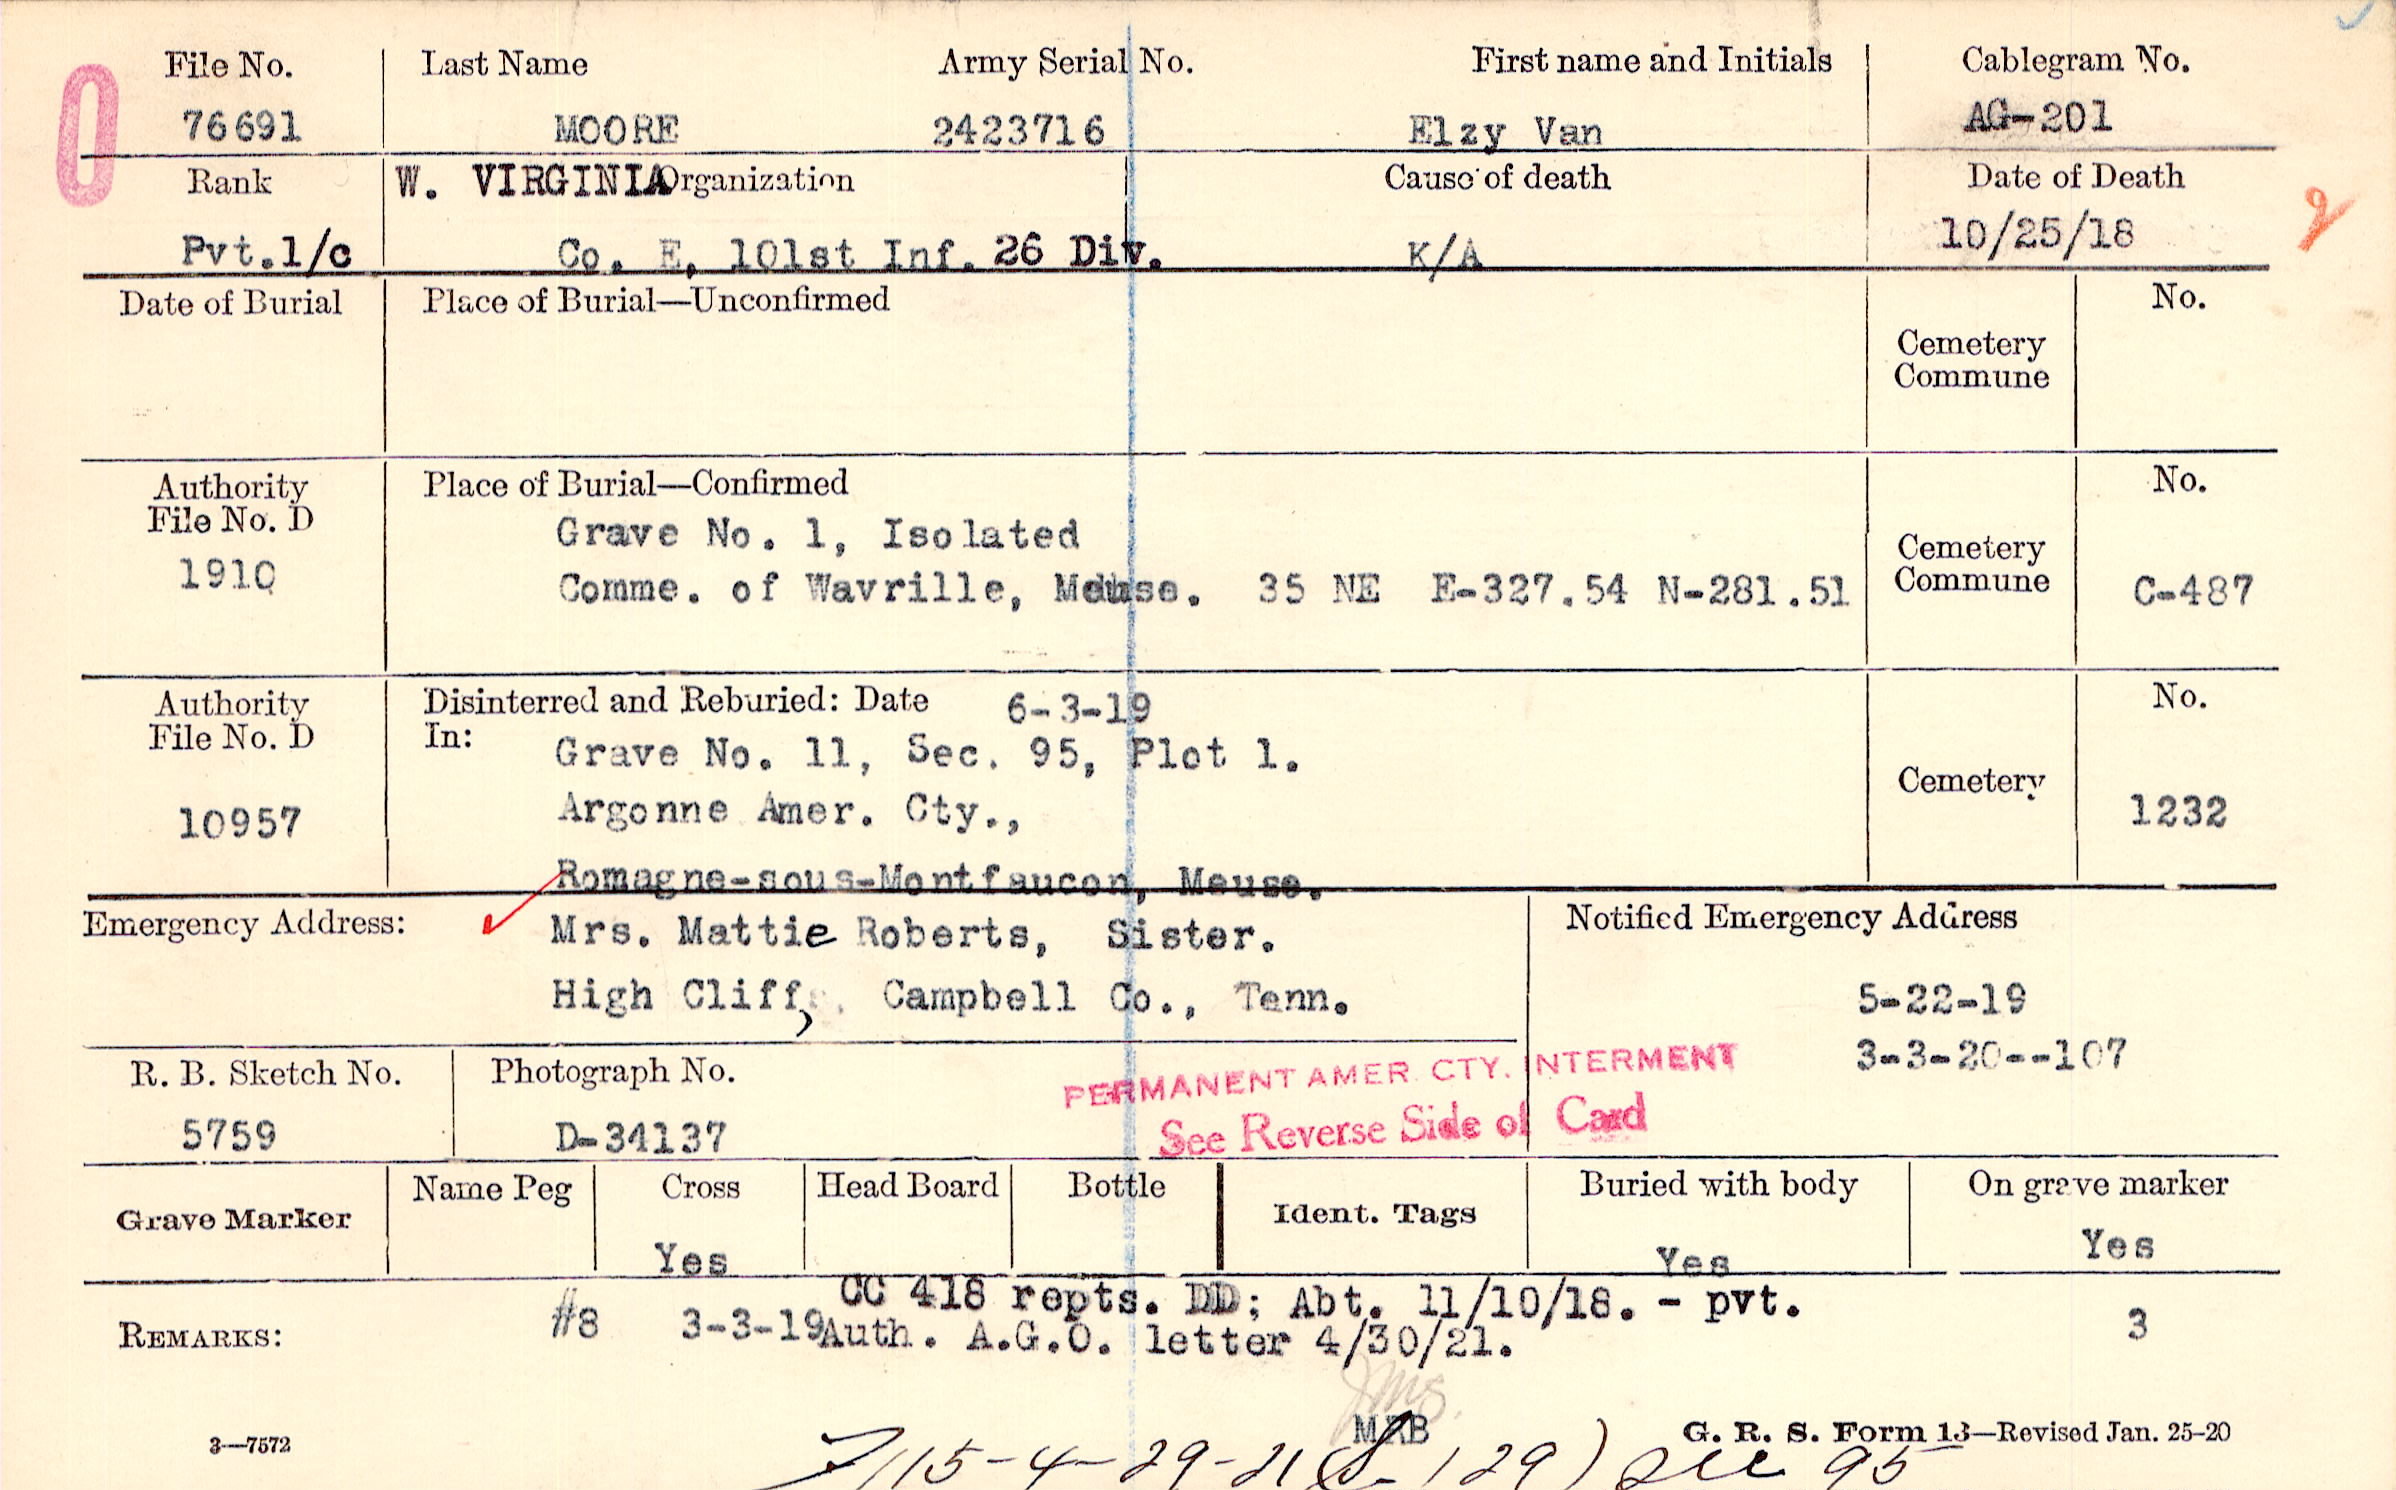 File No. Last Name Army Serial No. First name and Initials Cablegram No.
76691 MOORE 2423716 Elzy Van AG-201
Rank W. VIRGINIA Organization Cause of death Date of Death
Pvt.1/c Co. E, 101st Inf. 26 Div. K/A 10/25/18
Date of Burial Place of Burial—Unconfirmed No.
Cemetery
Commune
Authority Place of Burial—Confirmed No.
File No. D
Grave No. 1, Isolated
1910 Comme. of Wavrille, Meuse. 35 NE E-327.54 N-281.51 Cemetery
Commune C-487
Authority Disinterred and Reburied: Date 6-3-19 No.
File No. D In:
Grave No. 11, Sec. 95, Plot 1.
10957 Argonne Amer. Cty., Cemetery 1232
Romagne-sous-Montfaucon, Meuse.
Emergency Address: Mrs. Mattie Roberts, Sister. Notified Emergency Address
High Cliff, Campbell Co., Tenn. 5-22-19
3-3-20--107
R. B. Sketch No. Photograph No. PERMANENT AMER. CTY. INTERMENT
5759 D-34137 See Reverse Side of Card
Grave Marker Name Peg Cross Head Board Bottle Ident. Tags Buried with body On grave marker
Yes Yes Yes
CC 418 repts. DD; Abt. 11/10/18. - pvt.
REMARKS: #8 3-3-19 Auth. A.G.O. letter 4/30/21. 3
JMS.
MRB
3—7572 G. R. S. Form 13—Revised Jan. 25-20
115-4-29-21 (S-129) see 95